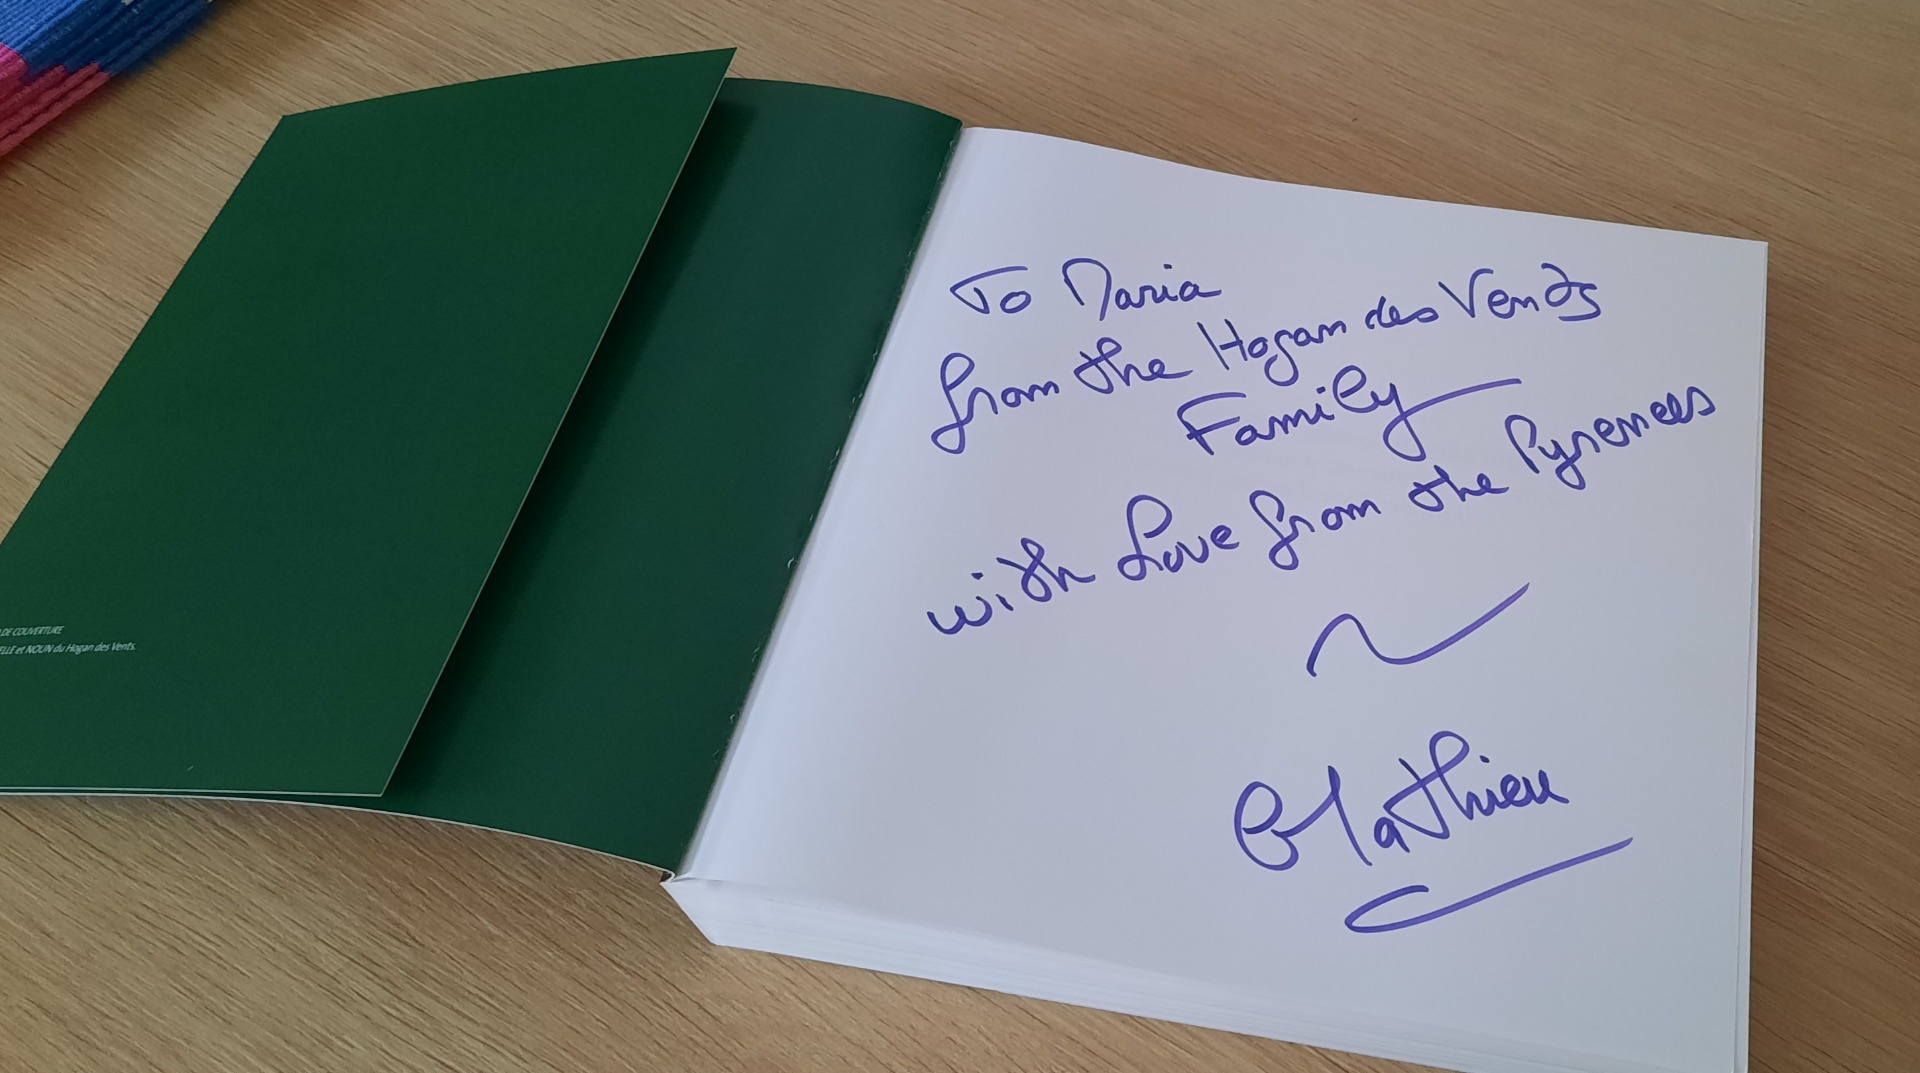 DE COUVERTURE
ELLE et NOUN du Hogan des Vents.
To Maria
from the Hogan des Vents
Family
with Love from the Pyrenees
Mathieu